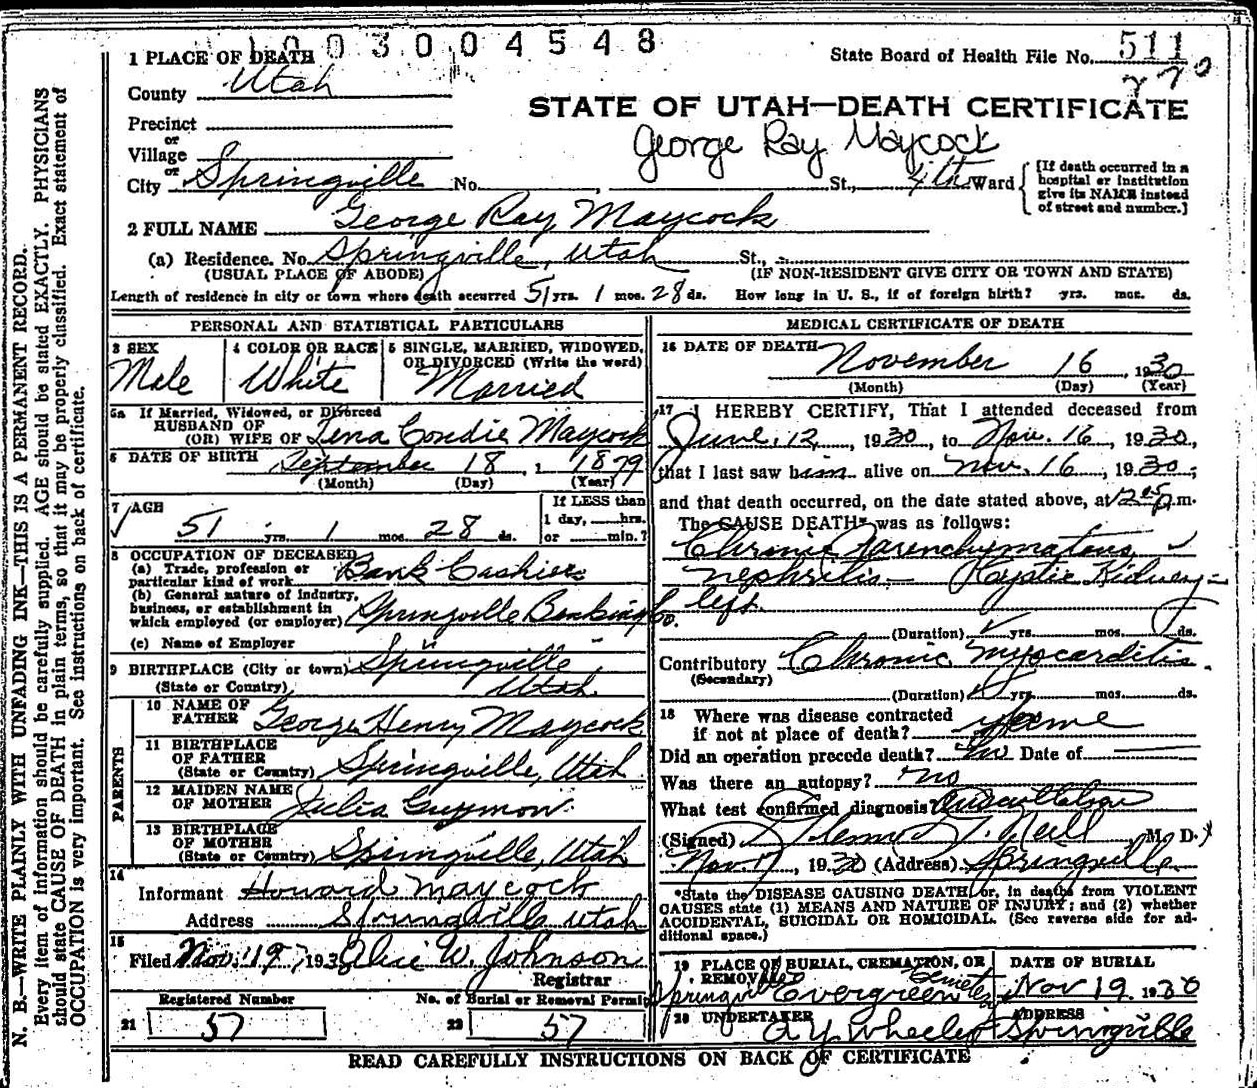 1003004548
1 PLACE OF DEATH
State Board of Health File No. 511
270
County Utah
STATE OF UTAH—DEATH CERTIFICATE
Precinct
or
Village
George Ray Maycock
or
City Springville No. , St., 4th Ward
[If death occurred in a
hospital or institution
give its NAME instead
of street and number.]
2 FULL NAME George Ray Maycock
(a) Residence. No. Springville, Utah St.,
(USUAL PLACE OF ABODE) (IF NON-RESIDENT GIVE CITY OR TOWN AND STATE)
Length of residence in city or town where death occurred 51 yrs. 1 mos. 28 ds. How long in U. S., if of foreign birth? yrs. mos. ds.
PERSONAL AND STATISTICAL PARTICULARS
3 SEX
Male
4 COLOR OR RACE
White
5 SINGLE, MARRIED, WIDOWED,
OR DIVORCED (Write the word)
Married
5a If Married, Widowed, or Divorced
HUSBAND OF
(OR) WIFE OF Lena Condie Maycock
6 DATE OF BIRTH September 18, 1 1879
(Month) (Day) (Year)
7 AGE
51 yrs. 1 mos. 28 ds.
If LESS than
1 day, hrs.
or min.?
8 OCCUPATION OF DECEASED
(a) Trade, profession or
particular kind of work Bank Cashier
(b) General nature of industry,
business, or establishment in
which employed (or employer) Springville Banking Co.
(c) Name of Employer
9 BIRTHPLACE (City or town) Springville
(State or Country) Utah
PARENTS
10 NAME OF
FATHER George Henry Maycock
11 BIRTHPLACE
OF FATHER
(State or Country) Springville, Utah
12 MAIDEN NAME
OF MOTHER Julia Guymon
13 BIRTHPLACE
OF MOTHER
(State or Country) Springville, Utah
14
Informant Howard Maycock
Address Springville Utah
15
Filed Nov. 19, 193 Alice W. Johnson
Registrar
Registered Number
21 57
No. of Burial or Removal Permit
22 57
MEDICAL CERTIFICATE OF DEATH
16 DATE OF DEATH November 16 1930
(Month) (Day) (Year)
17 I HEREBY CERTIFY, That I attended deceased from
June, 12, 1930, to Nov. 16, 1930,
that I last saw him alive on Nov. 16, 1930;
and that death occurred, on the date stated above, at 12 05 P.m.
The CAUSE DEATH* was as follows:
Chronic Parenchymatous
nephritis— Kidney—
left
(Duration) yrs. mos. ds.
Contributory Chronic Myocarditis.
(Secondary)
(Duration) yrs. mos. ds.
18 Where was disease contracted
if not at place of death? Home
Did an operation precede death? No Date of
Was there an autopsy? No
What test confirmed diagnosis
(Signed) T. Neill M. D.
Nov. 17, 1930 (Address) Springville
*State the DISEASE CAUSING DEATH, or, in deaths from VIOLENT
CAUSES state (1) MEANS AND NATURE OF INJURY; and (2) whether
ACCIDENTAL, SUICIDAL OR HOMICIDAL. (See reverse side for ad-
ditional space.)
19 PLACE OF BURIAL, CREMATION, OR
REMOVAL
Springville Evergreen Cemetery
DATE OF BURIAL
Nov 19. 1930
20 UNDERTAKER
A Y Wheeler
ADDRESS
Springville
READ CAREFULLY INSTRUCTIONS ON BACK OF CERTIFICATE
N. B.—WRITE PLAINLY WITH UNFADING INK—THIS IS A PERMANENT RECORD.
Every item of information should be carefully supplied. AGE should be stated EXACTLY. PHYSICIANS
should state CAUSE OF DEATH in plain terms, so that it may be properly classified. Exact statement of
OCCUPATION is very important. See instructions on back of certificate.